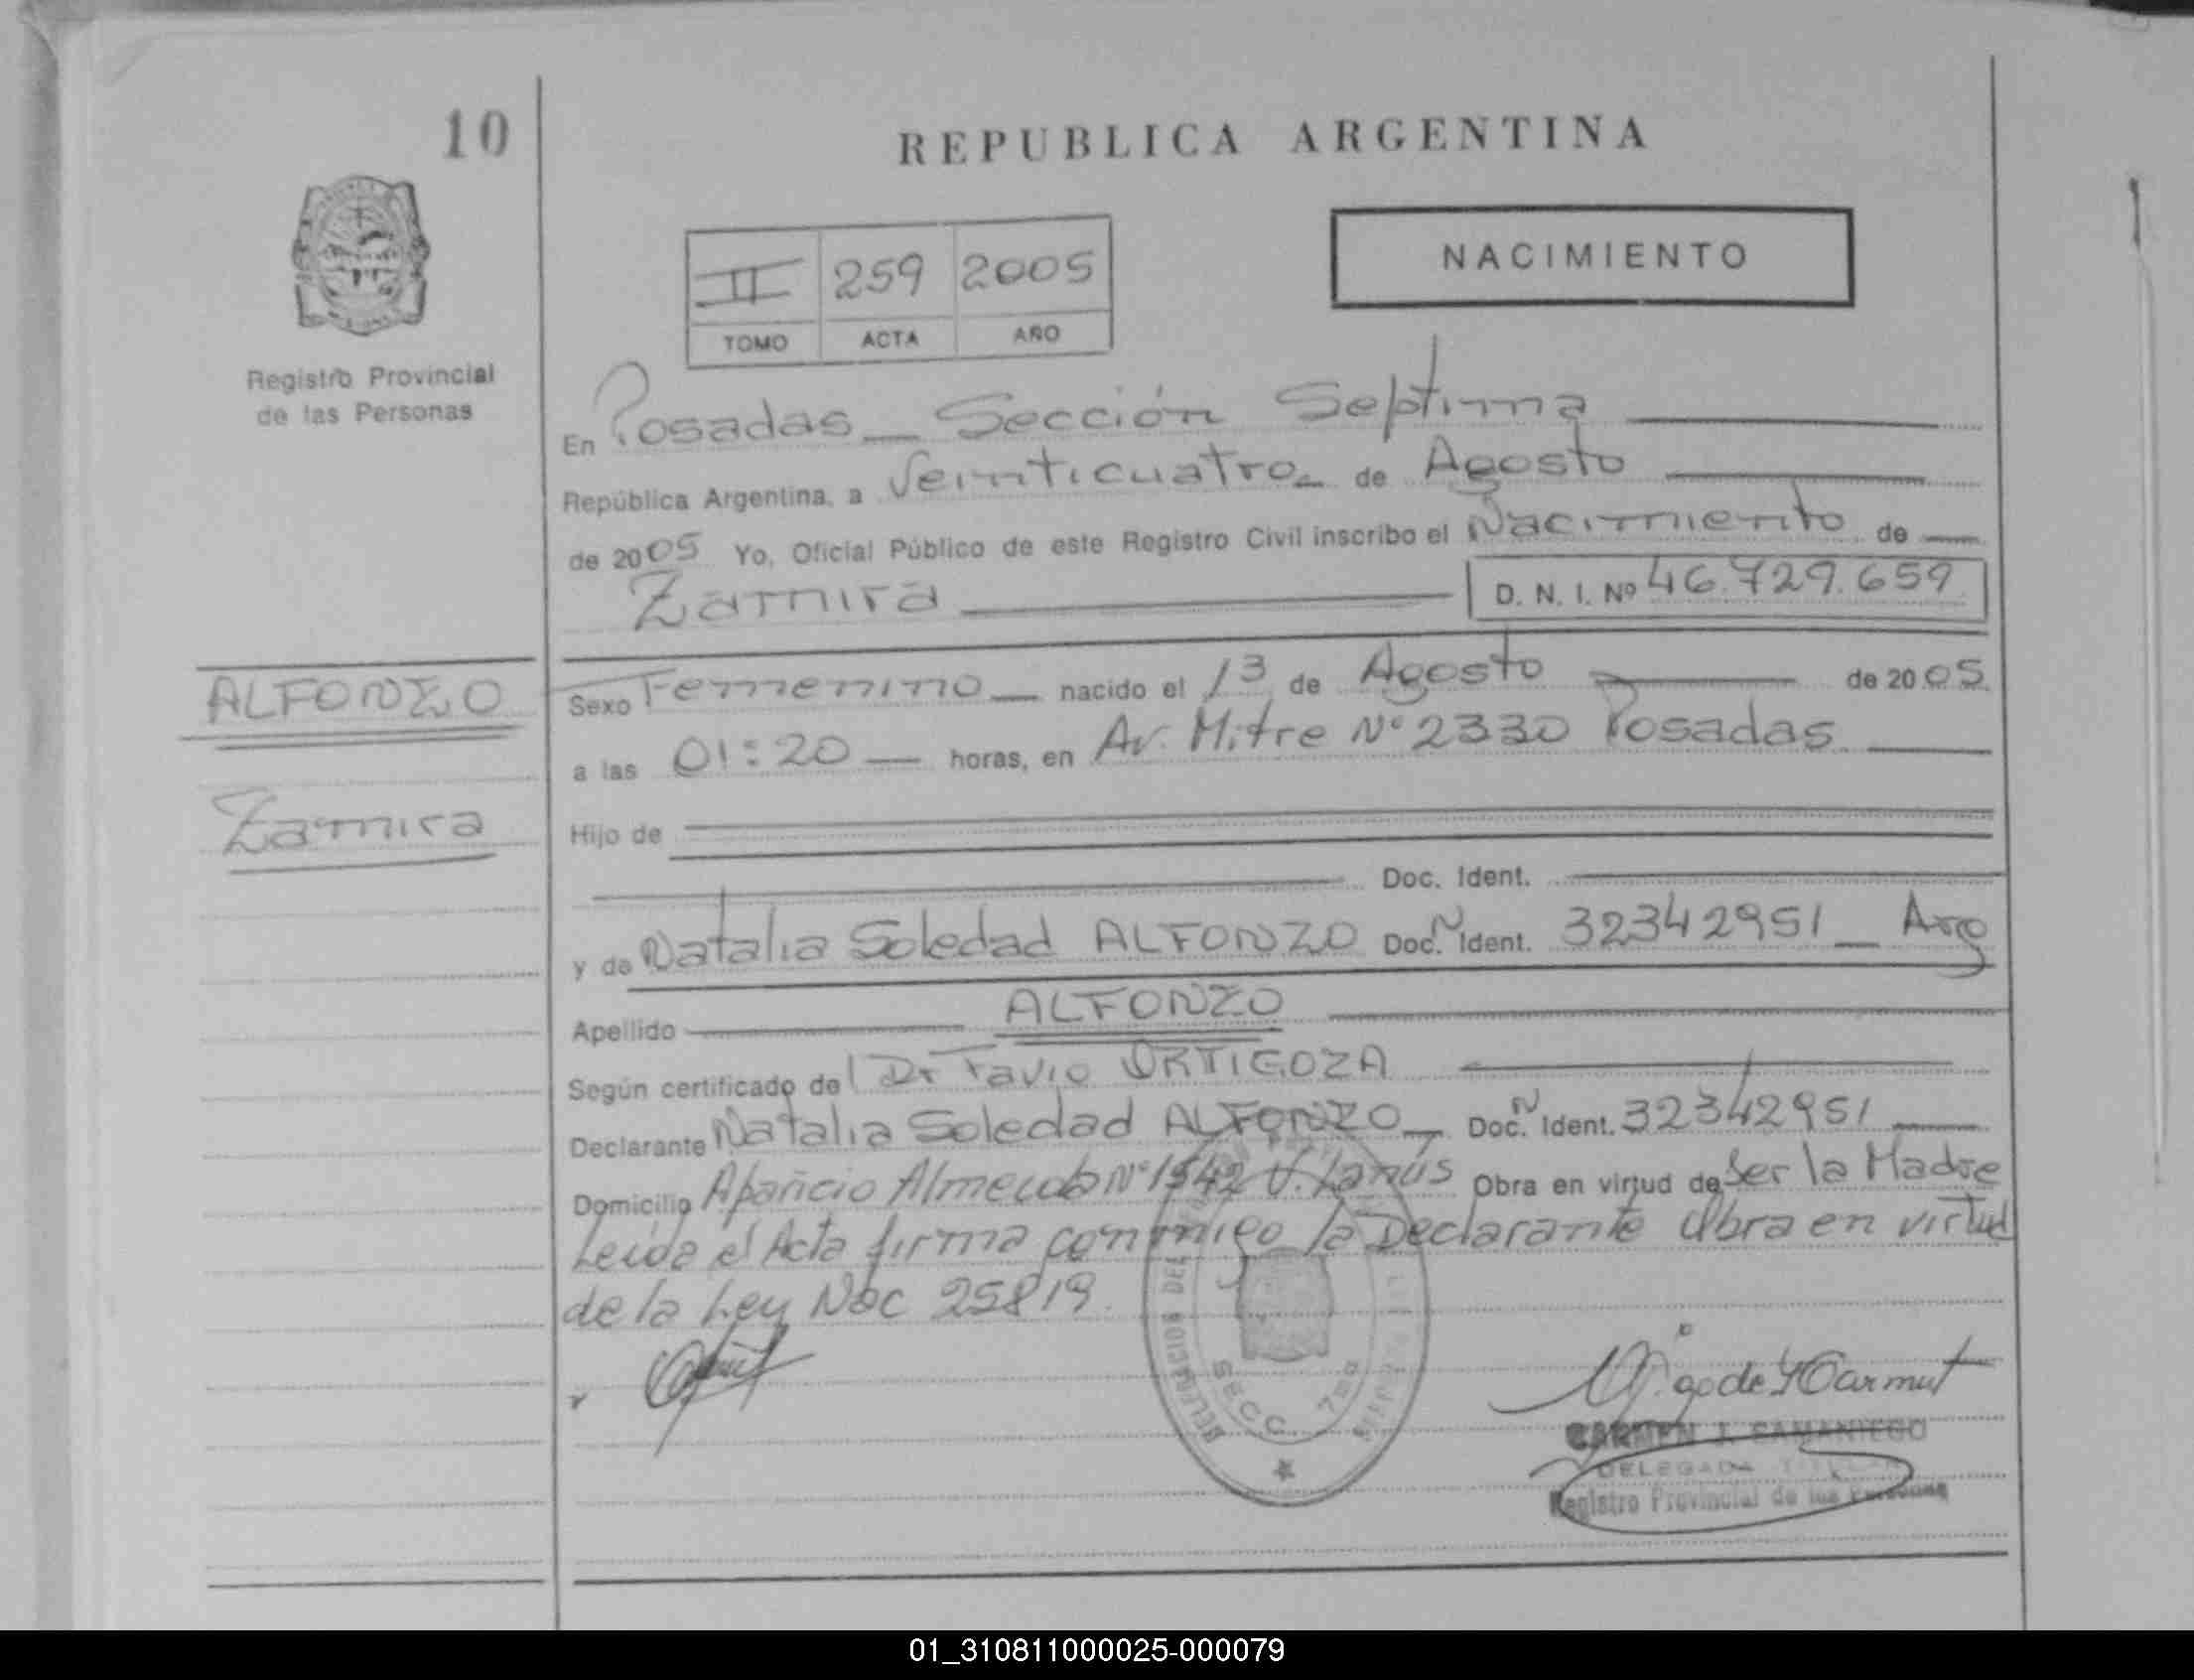 10
REPUBLICA ARGENTINA
NACIMIENTO
II 259 2005
TOMO ACTA AÑO
Registro Provincial
de las Personas
En Posadas — Sección Septima
República Argentina, a Veinticuatro de Agosto
de 2005 Yo, Oficial Público de este Registro Civil inscribo el Nacimiento de
Zamira D. N. I. Nº 46.729.659
ALFONZO
Zamira
Sexo Femenino nacido el 13 de Agosto de 2005
a las 01:20 horas, en Av. Mitre Nº 2330 Posadas
Hijo de
Doc. Ident.
y de Natalia Soledad ALFONZO Doc. N Ident. 32342951 _ Arg
Apellido ALFONZO
Según certificado del Dr Favio ORTIGOZA
Declarante Natalia Soledad ALFONZO Doc. N Ident. 32342951
Domicilio Aparicio Almeida Nº 1542 V. Lanús Obra en virtud de Ser la Madre
Leida el Acta firma conmigo la Declarante Obra en virtud
de la Ley Nac 25819.
SECC. 7ma
CARMEN J. CAMANIEGO
DELEGADA TITULAR
Registro Provincial de las Personas
01_310811000025-000079